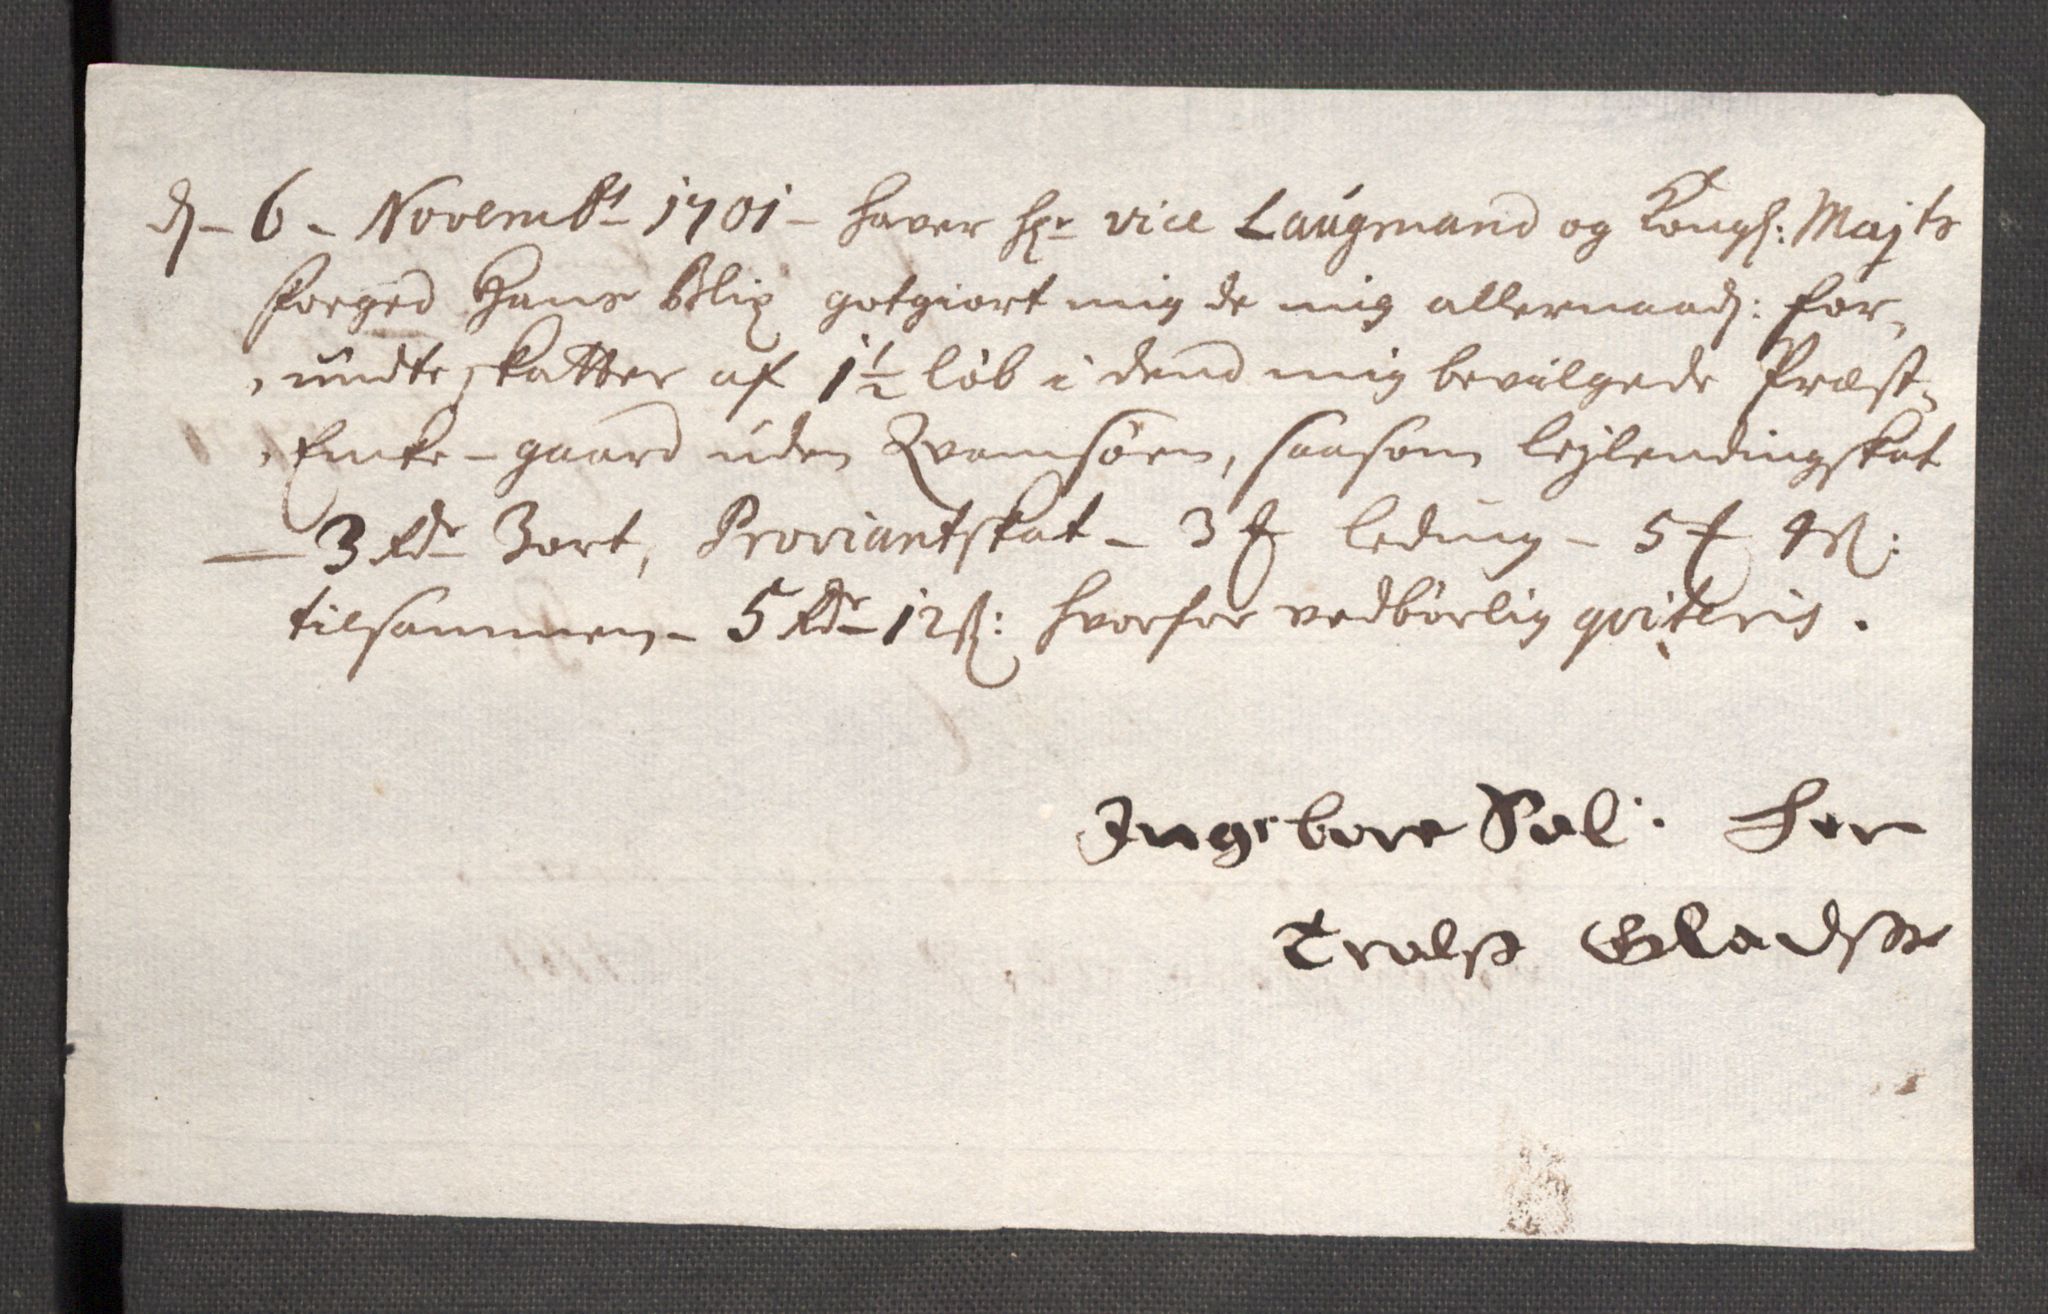 d. 6. Novembr 1701 – haver Hr. vice Laugmand og Kongl: Majts
foeged Hans Blix gotgiort mig de mig allernaad: for-
undte skatter af 1½ løb i dend mig bevilgede Præst-
Encke-gaard uden Qvamsøen, saasom lejlendingskat
3 Rdr 3 ort, Proviantskat – 3 ₰ leding – 5 ₰ 4 ß:
tilsammen – 5 Rdr 12 ß: hvorfor vedbørlig qviteris.
Ingebore Sal: Her
Trolsß Gladsß